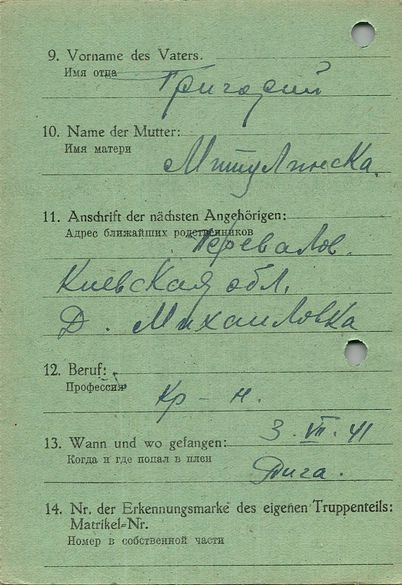 9. Vorname des Vaters.
Имя отца
Григорий
10. Name der Mutter:
Имя матери
Митулинска.
11. Anschrift der nächsten Angehörigen:
Адрес ближайших родственников
Перевалов.
Киевская обл.
Д. Михаиловка
12. Beruf:
Профессия
Кр-н.
13. Wann und wo gefangen:
3. VII. 41
Когда и где попал в плен
Рига.
14. Nr. der Erkennungsmarke des eigenen Truppenteils:
Matrikel-Nr.
Номер в собственной части